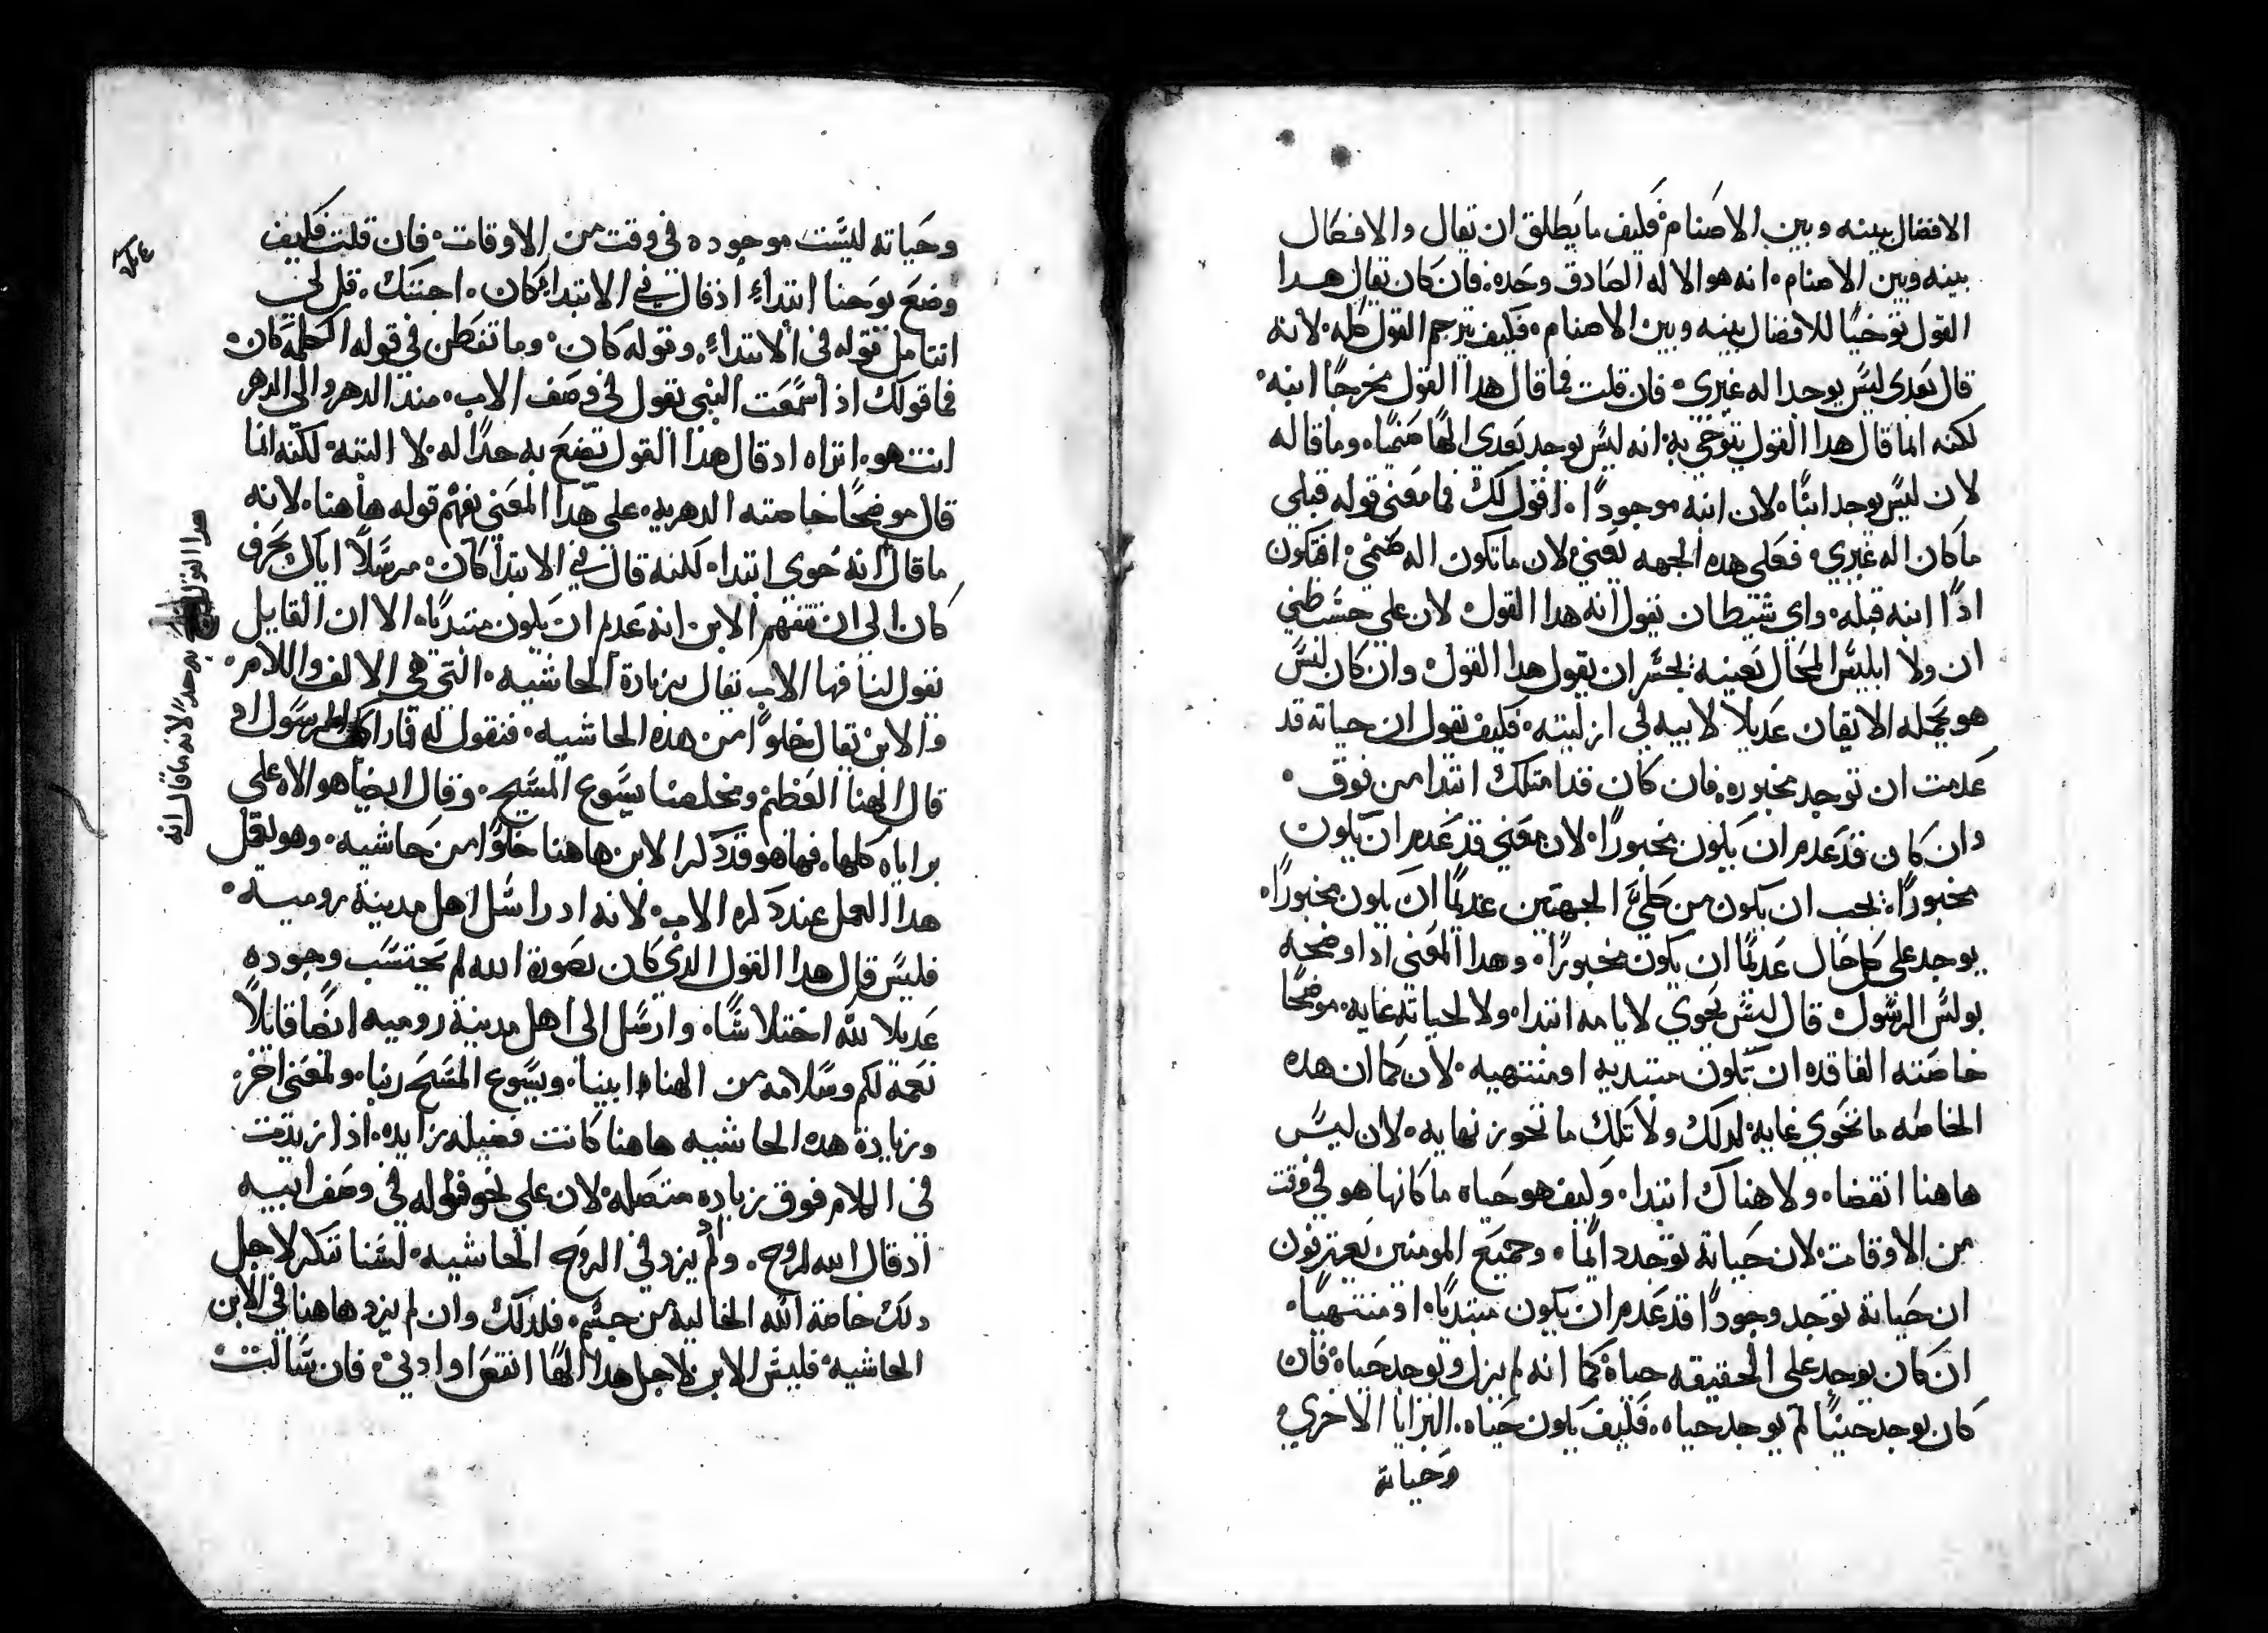 الافضال بينه وبين الاصنام فكيف ما يطلق ان تقال والافضال
بينه وبين الاصنام انه هو الاله الصادق وحده فان كان تقال هدا
القول توخيًا للافضال بينه وبين الاصنام فكيف يترجم القول كله لانه
قال بعدى ليس يوجد اله غيري فان قلت فما قال هدا القول مخرجًا ابنه
لكنه انما قال هدا القول يتوخي به انه ليس يوجد بعدى الهًا صنمًا وما قاله
لان ليس يوجد ابنًا لان ابنه موجودًا افقول لك فما معني قوله قبلي
ما كان اله غيري فعلي هده الجهه تعني لان ما تكون اله صنمي افتكون
اذًا ابنه قبله واي شيطان يقول انه هدا القول لان علي حسب ظني
ان ولا ابليس المحال بعينه يجسر ان يقول هدا القول وان كان ليس
هو بجمله الايقان عديلا لابيه في ازليته فكيف تقول ان حياته قد
عدمت ان توجد مخبوره فان كان قد امتلك ابتدا من فوق
وان كان قد عدم ان يكون مخبورًا لان معني قد عدم ان يكون
مخبورًا يجب ان يكون من كلتي الجهتين عديمًا ان يكون مخبورًا
يوجد علي كل حال عديمًا ان يكون مخبورًا وهدا المعني ادا وضحه
بولس الرسول قال ليس يحوي لايامه ابتدا ولا لحياته غايه موضحًا
خاصته الفاقده ان تكون مبتديه او منتهيه لان كما ان هده
الخاصه ما تحوي غايه لدلك ولا تلك ما تحوز نهايه لان ليس
هاهنا انقضا ولا هناك ابتدا وكيف هو حياه ما كانها هو في وقت
من الاوقات لان حياته توجد دايمًا وجميع المومنين يعترفون
ان حياته توجد وجودًا قد عدم ان يكون مبتديًا او منتهيًا
ان كان يوجد علي الحقيقه حياة كما انه لم يزل ويوجد حياه فان
كان يوجد حينًا لم يوجد حياه فكيف يكون حياه البرايا الاخري
وحياته
وحياته ليست موجوده في وقت من الاوقات فان قلت فكيف
وضع يوحنا ابتداءً اذ قال في الابتدا كان اجبتك قل لي
اتتامل قوله في الابتداء وقوله كان وما تفطن في قوله الكلمه كان
فما قولك اذ اسمعت النبي يقول في وصف الاب مند الدهر والي الدهر
انت هو اتراه اد قال هدا القول تضع به حدًا له لا البته لكنه انما
قال موضحًا خاصته الدهريه علي هدا المعني تفهم قوله هاهنا لانه
ما قال انه حوي ابتدا لكنه قال في الابتدا كان مرسلاً اياك بحرف
كان الي ان تتفهم الابن انه عدم ان يكون مبتديًا الا ان القايل
يقول لنا فها الاب تقال بزيادة الحاشيه التي هي الالف واللام
والابن تقال خلوًا من هده الحاشيه فنقول له فما داك الرسول اد
قال الهنا العظيم ومخلصنا يسوع المسيح وقال ايضا هو الاه علي
براياه كلها فها هو قد دكر الابن هاهنا خلوًا من حاشيه وهو يعمل
هدا العمل عند دكره الاب لانه اد راسل اهل مدينة روميه
فليس قال هدا القول الدي كان بصورة الله لم يحتسب وجوده
عديلا لله اختلاسًا وارسل الي اهل مدينة روميه ايضًا قايلاً
نعمة لكم وسلامه من الهنا ابينا ويسوع المسيح ربنا ولمعني اخر
وزيادة هده الحاشيه هاهنا كانت فضيله زايده اذا زيدت
في الكلام فوق زياده متصله لان علي نحو قوله في وصف ابيه
اد قال الله لروح ولم يزد في الروح الحاشيه لسنا ننكر لاجل
دلك خاصة الله الخاليه من جسم فلدلك وان لم يزد هاهنا في الابن
الحاشيه فليس الابن لاجل هدا الهًا انقص او ادني فان سالت
هدا القول به حدًا لانه ما قال انه